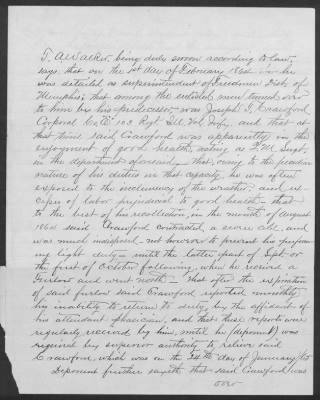 T. A. Walker, being duly sworn according to law,
says, that on the 1st day of February 1864 he
was detailed as superintendent of Freedmen Dist. of
Memphis; that among the detailed men turned over
to him by his predecessor was Joseph T. Crawford
Corporal Co. "E" 103 Regt. Ill. Vol. Infy. and that at
that time said Crawford was apparently in the
enjoyment of good health, acting as
in the department of that, owing to the peculiar
nature of his duties in that capacity, he was often
exposed to the inclemency of the weather, and
of labor prejudicial to good health. that
to the best of his recollection, in the month of August
1864 said Crawford contracted, a severe cold, and
was much indisposed not however to prevent his perform-
ing light duty until the latter part of Sept. or
the first of October following, when he received a
Furlow and went north. That after the expiration
of said furlow said Crawford reported monthly
his inability to return to duty, by the affidavit of
his attendant physician, and that these reports were
regularly received by him, until he (deponent) was
required by superior authority to relieve said
Crawford, which was on the 24th day of January /65
Deponent further sayeth that said Crawford was
over